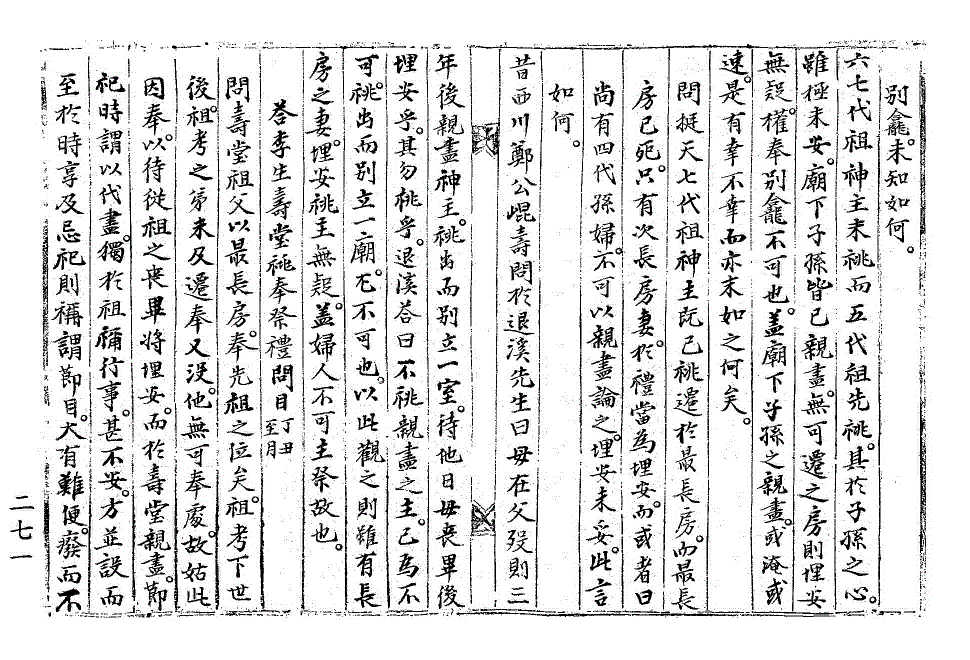 別龕。未知如何。
六七代祖神主未祧而五代祖先祧。其於子孫之心。
雖極未安。廟下子孫皆已親盡。無可遷之房則埋安
無疑。權奉別龕不可也。盖廟下子孫之親盡。或淹或
速。是有幸不幸而亦末如之何矣。
問挺天七代祖神主旣已祧遷於最長房。而最長
房已死。只有次長房妻。於禮當爲埋安。而或者曰
尙有四代孫婦。不可以親盡論之。埋安未妥。此言
如何。
昔西川鄭公崐壽問於退溪先生曰母在父歿則三
年後親盡神主。祧出而別立一室。待他日母喪畢後
埋安乎。其勿祧乎。退溪答曰不祧親盡之主。已爲不
可。祧出而別立一廟。尤不可也。以此觀之則雖有長
房之妻。埋安祧主無疑。盖婦人不可主祭故也。
答李生壽堂祧奉祭禮問目 丁丑至月
問壽堂祖父以最長房。奉先祖之位矣。祖考下世
後。祖考之弟未及遷奉又沒。他無可奉處。故姑此
因奉。以待從祖之喪畢將埋安。而於壽堂親盡。節
祀時謂以代盡。獨於祖禰行事。甚不安。方並設而
至於時享及忌祀則稱謂節目。大有難便。廢而不
二七一